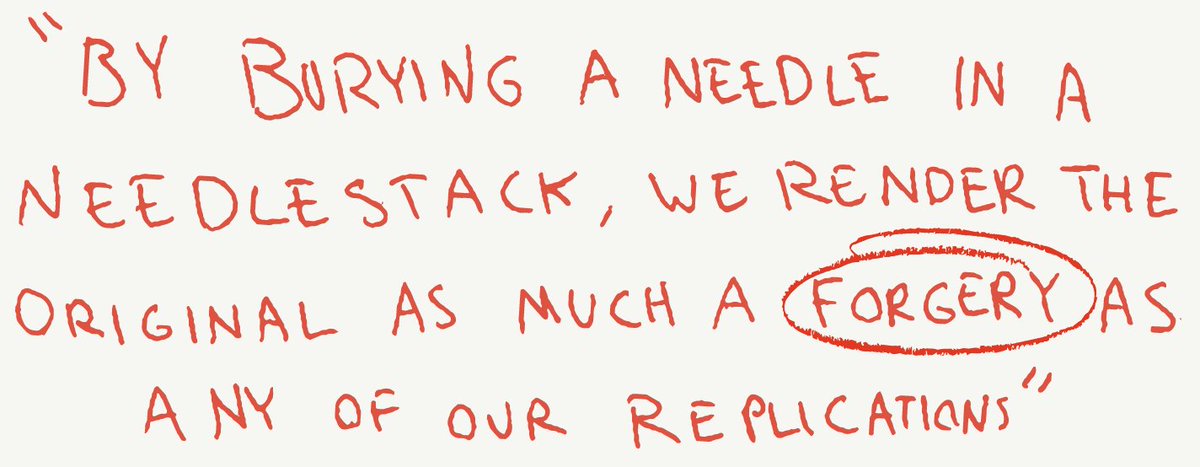 "BY BURYING A NEEDLE IN A
NEEDLESTACK, WE RENDER THE
ORIGINAL AS MUCH A FORGERY AS
ANY OF OUR REPLICATIONS"